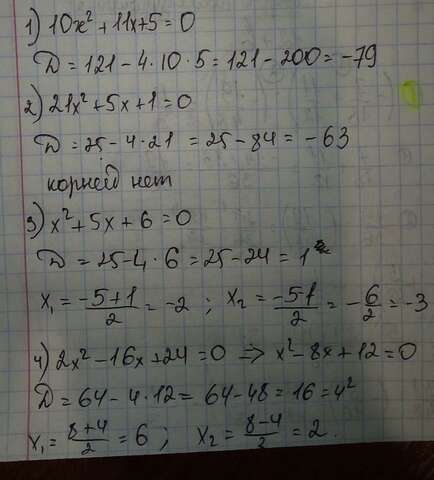 1) 10x² + 11x + 5 = 0
D = 121 - 4 · 10 · 5 = 121 - 200 = -79
2) 21x² + 5x + 1 = 0
D = 25 - 4 · 21 = 25 - 84 = -63
корней нет
3) x² + 5x + 6 = 0
D = 25 - 4 · 6 = 25 - 24 = 1
x₁ = (-5+1)/2 = -2 ; x₂ = (-5-1)/2 = -6/2 = -3
4) 2x² - 16x + 24 = 0 ⇒ x² - 8x + 12 = 0
D = 64 - 4 · 12 = 64 - 48 = 16 = 4²
x₁ = (8+4)/2 = 6 ; x₂ = (8-4)/2 = 2.